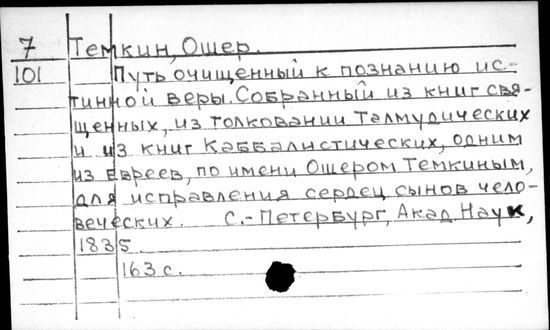 7 Темкин, Ошер.
101 Путь очищенный к познанию ис-
тинной веры. Собранный из книг свя-
щенных, из толковании Талмудических
и из книг Каббалистических, одним
из евреев, по имени Ошером Темкиным,
для исправления сердец сынов чело-
веческих. С.-Петербург, Акад. Наук,
1835.
163 с.